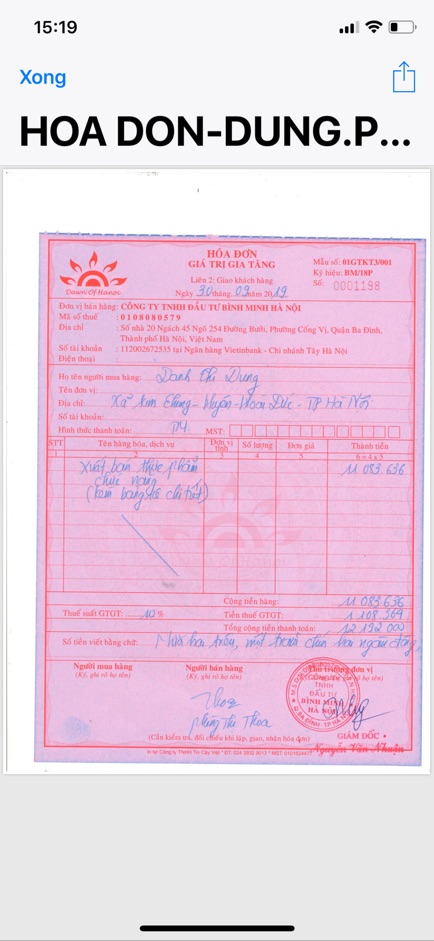 15:19
Xong
HOA DON-DUNG.P...
HÓA ĐƠN
GIÁ TRỊ GIA TĂNG
Liên 2: Giao khách hàng
Ngày 30 tháng 09 năm 2019
Mẫu số: 01GTKT3/001
Ký hiệu: BM/18P
Số: 0001198
Dawn Of Hanoi
Đơn vị bán hàng: CÔNG TY TNHH ĐẦU TƯ BÌNH MINH HÀ NỘI
Mã số thuế : 0108080579
Địa chỉ : Số nhà 20 Ngách 45 Ngõ 254 Đường Bưởi, Phường Cống Vị, Quận Ba Đình,
Thành phố Hà Nội, Việt Nam
Số tài khoản : 112002672535 tại Ngân hàng Vietinbank - Chi nhánh Tây Hà Nội
Điện thoại :
Họ tên người mua hàng: Danh Thị Dung
Tên đơn vị:
Địa chỉ: Xã Kim Chung - Huyện Hoài Đức - TP Hà Nội
Số tài khoản:
Hình thức thanh toán: TM MST:
STT Tên hàng hóa, dịch vụ Đơn vị tính Số lượng Đơn giá Thành tiền
1 2 3 4 5 6 = 4 x 5
Xuất bán thực phẩm 11 083.636
chức năng
(kèm bảng kê chi tiết)
Cộng tiền hàng: 11 083.636
Thuế suất GTGT: 10 % Tiền thuế GTGT: 1 108.364
Tổng cộng tiền thanh toán: 12 192 000
Số tiền viết bằng chữ: Mười hai triệu, một trăm chín hai ngàn đồng
Người mua hàng Người bán hàng Thủ trưởng đơn vị
(Ký, ghi rõ họ tên) (Ký, ghi rõ họ tên)
TNHH
ĐẦU TƯ
BÌNH MINH
HÀ NỘI
Q. BA ĐÌNH - TP HÀ NỘI
Thoa
Phùng Thị Thoa
GIÁM ĐỐC
(Cần kiểm tra, đối chiếu khi lập, giao, nhận hóa đơn)
Nguyễn Văn Nhuận